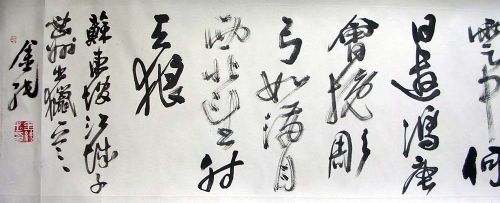 雲中何
日遣馮唐
會挽彫
弓如满月
西北望射
天狼
蘇東坡江城子
密州出獵